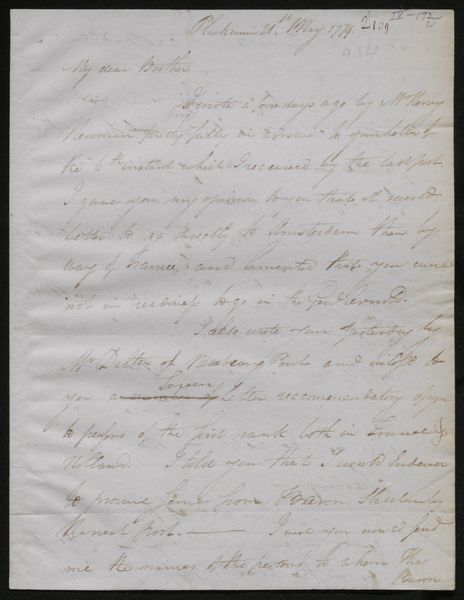 Pluckemin 21st May 1779. 210
IV-172
My dear Brother
I wrote a few days ago by Mr Henry
Newman pretty fully in answer to your letter of
the 6th instant which I received by the last post.
I gave you my opinion to you that it would
better to go directly to Amsterdam than by
way of France, and lamented that you were
not in readiness to go in the
I also wrote you yesterday by
Mr of Newbury Port and inclosed to
you a Seven Letter recommendatory of you
to persons of the first rank both in France &
Holland. I told you that I would Endeavor
to procure some from Baron Steuben by
the next Post. — I wish you would send
me the names of the persons to whom the
Baron